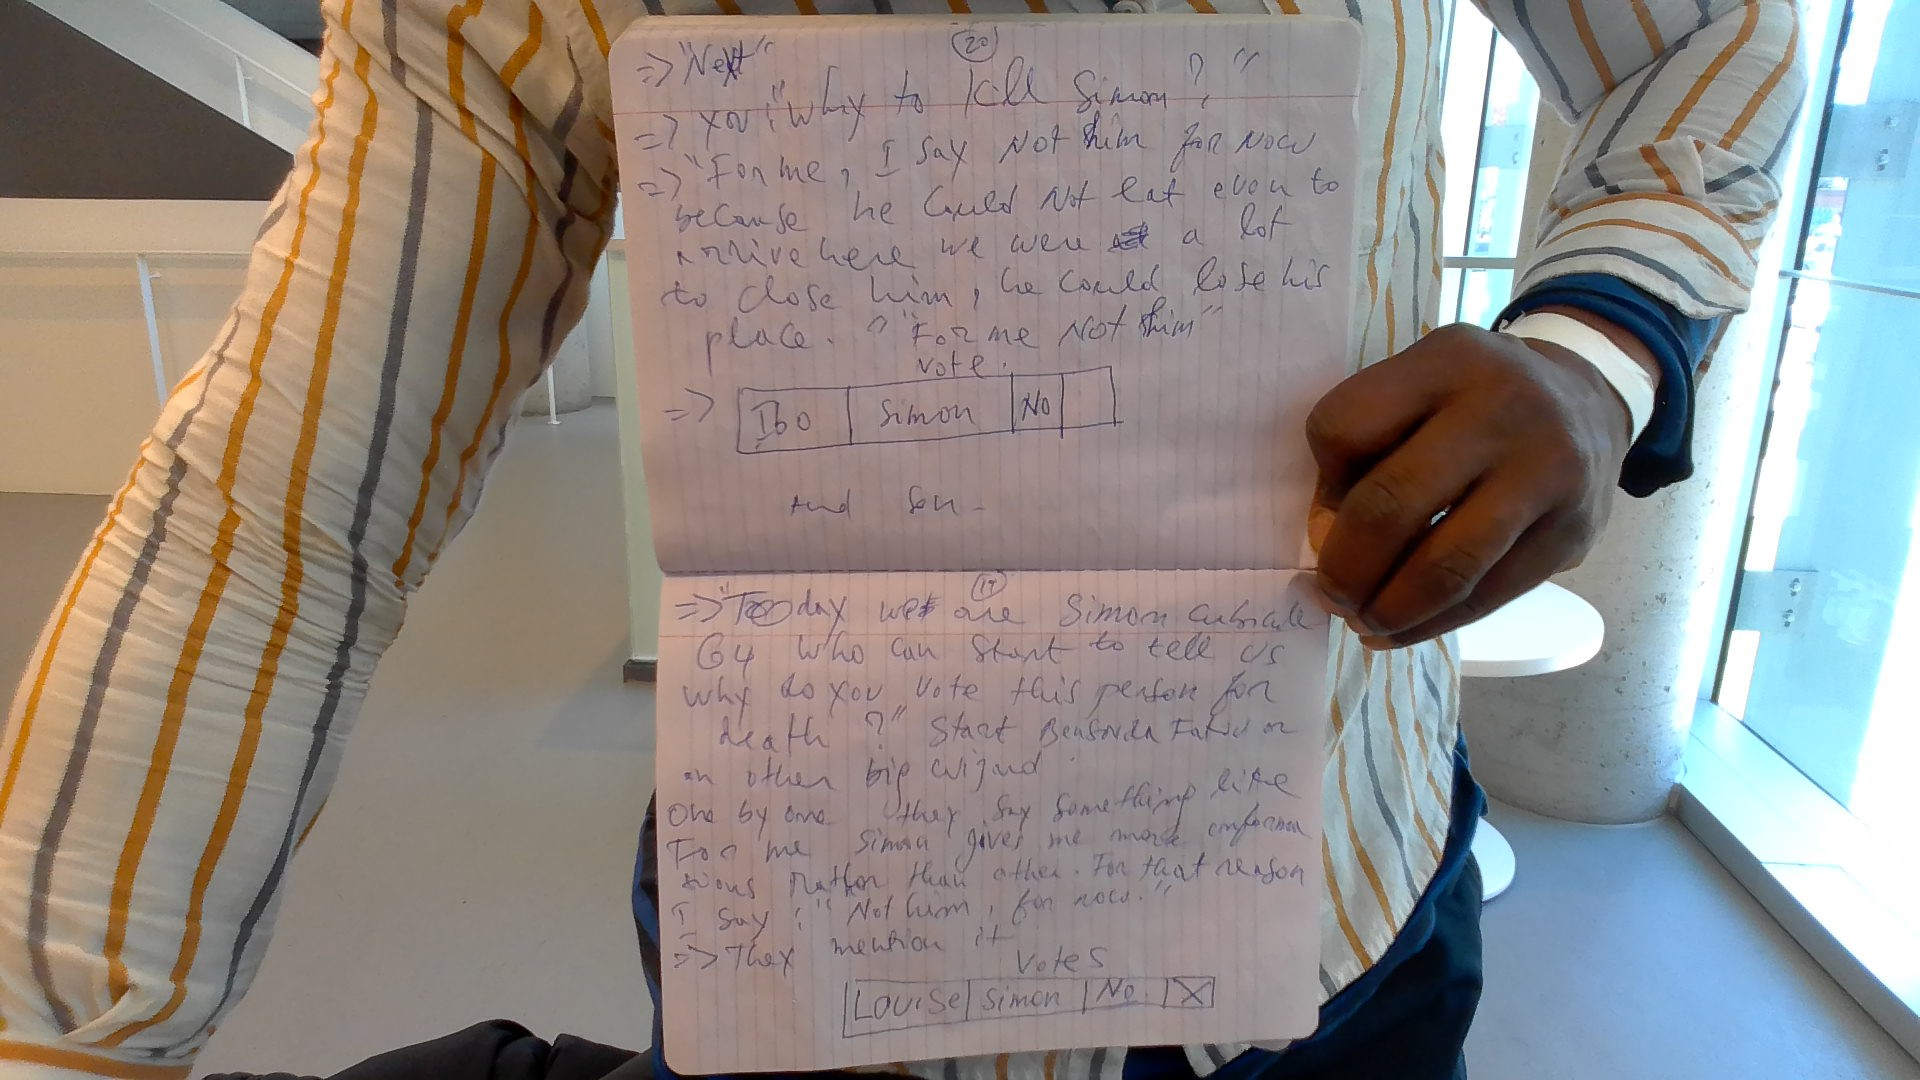 20
=> "Next"
=> you: "why to kill Simon? "
=> "For me, I say Not him for Now
because he could Not eat even to
arrive here we were a lot
to close him, he could lose his
place. " "For me Not him"
vote.
=> Ibo Simon No
and son -
19
=> "Today we are Simon cubicule
G4 who can start to tell us
why do you vote this person for
death ?" Start or
an other big wizard.
One by one they say something like
For me Simon gives me more informa
tions rather than other. For that reason
I say: "Not him, for now."
=> They mention it
Votes
Louise Simon No. X